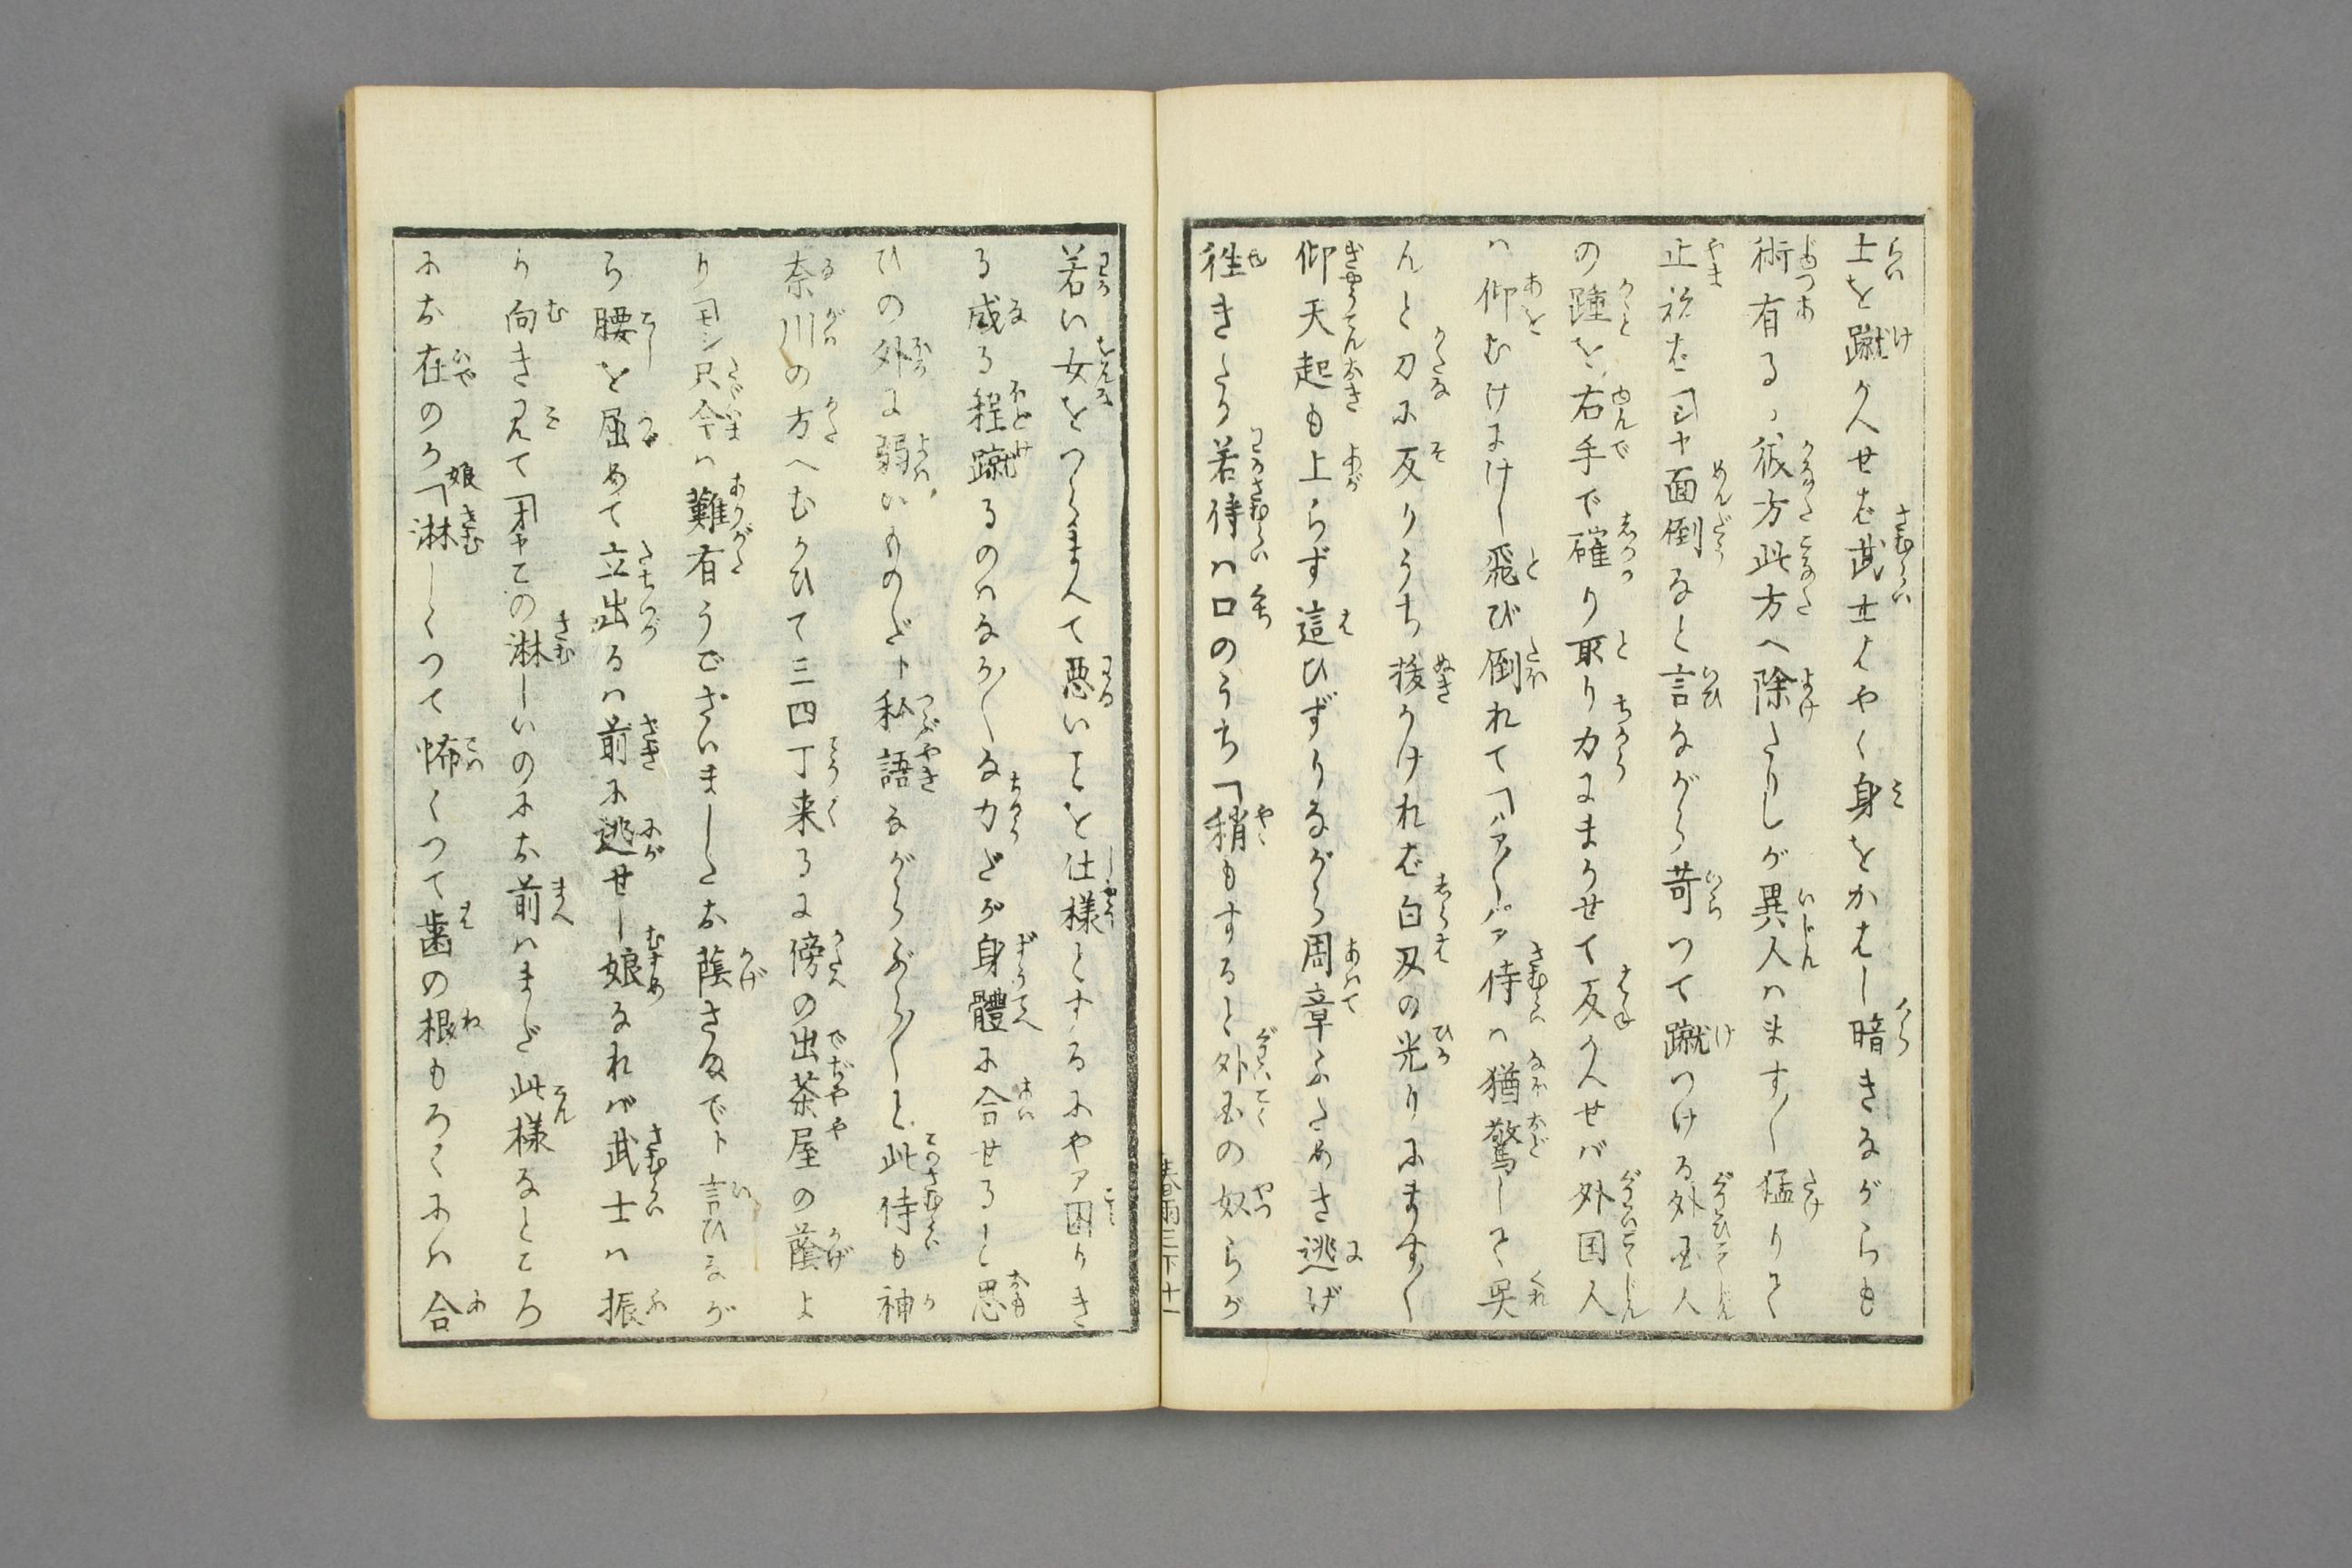 士を蹴かへせば武士はやく身をかはし暗きながらも
術有る彼方此方へ除たりしが異人ハます〳〵猛りて
止ねば「ヱヽ面倒なと言ながら苛つて蹴つける外国人
の踵を右手で確り取り力にまかせて反かへせバ外国人
ハ仰むけにけし飛び倒れて「ハア〳〵ハア侍ハ猶驚して呉
んと刀に反りうち抜かけれバ白刃の光りにます〳〵
仰天起も上らず這ひずりながら周章ふためき逃げ
往きたり若侍ハ口のうち「稍もすると外国の奴らが
若い女をつらまへて悪いことを仕様とするにやア困りき
る威る程蹴るのハなか〳〵な力だが身體に合せると思
ひの外に弱いものだト私語ながらぶら〳〵と此侍も神
奈川の方へむかひて三四丁来るに傍の出茶屋の蔭よ
り「モシ只今ハ難有うございましたお蔭さまでト言ひなが
ら腰を屈めて立出るハ前に逃せし娘なれバ武士ハ振
り向き見て「ヲヤこの淋しいのにお前ハまだ此様なところ
にお在のか娘「淋しくつて怖くつて歯の根もろくにハ合
春雨三下十一